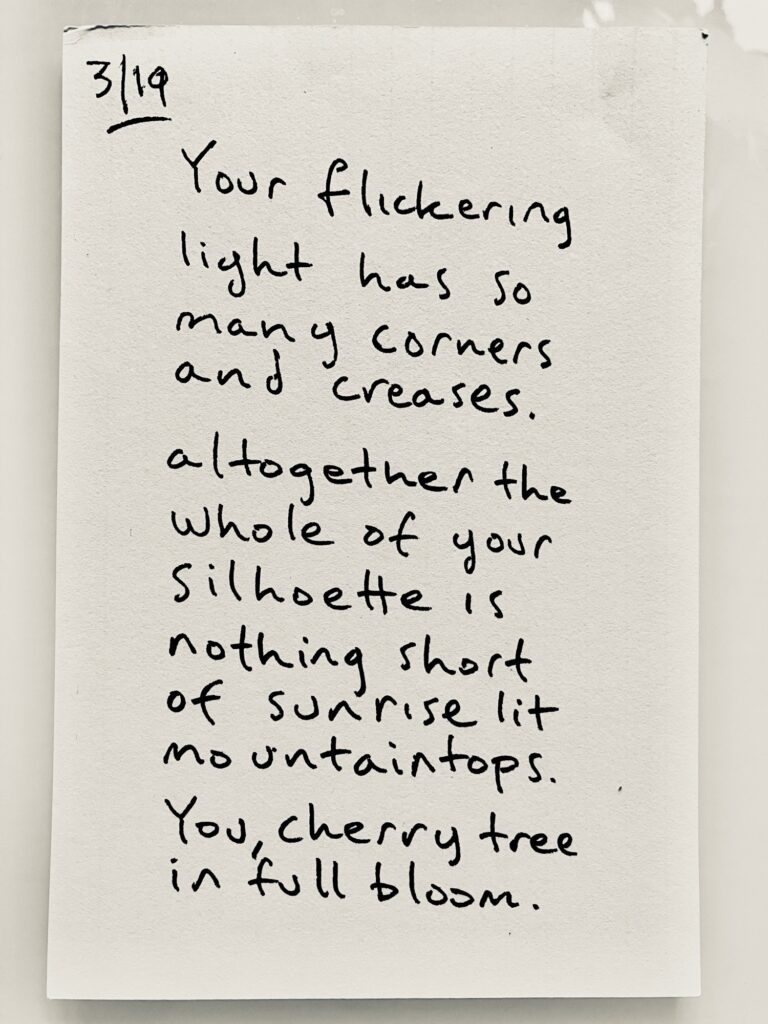 3/19
Your flickering
light has so
many corners
and creases.
altogether the
whole of your
silhoette is
nothing short
of sunrise lit
mountaintops.
You, cherry tree
in full bloom.